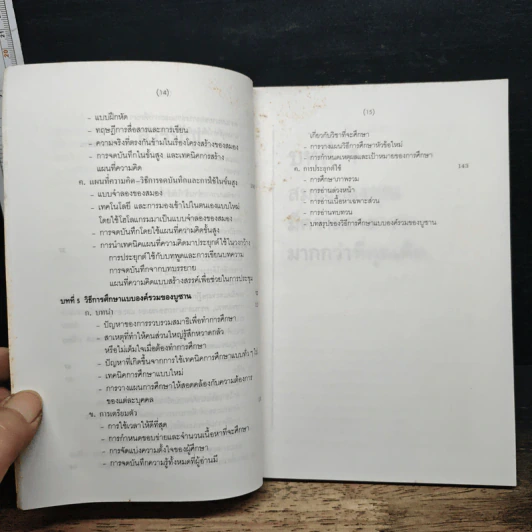 (14)
- แบบฝึกหัด
- ทฤษฎีการสื่อสารและการเขียน
- ความจริงที่ตรงกันข้ามในเรื่องโครงสร้างของสมอง
- การจดบันทึกในชั้นสูง และเทคนิคการสร้าง
แผนที่ความคิด
ค. แผนที่ความคิด-วิธีการจดบันทึกและการใช้ในชั้นสูง
- แบบจำลองของสมอง
- เทคโนโลยี และการมองเข้าไปในตนเองแบบใหม่
โดยใช้โฮโลแกรมมาเป็นแบบจำลองของสมอง
- การจดบันทึกโดยใช้แผนที่ความคิดชั้นสูง
- การนำเทคนิคแผนที่ความคิดมาประยุกต์ใช้ในวงกว้าง
การประยุกต์ใช้กับบทพูดและการเขียนบทความ
การจดบันทึกจากบทบรรยาย
แผนที่ความคิดแบบสร้างสรรค์เพื่อช่วยในการประชุม
บทที่ 5 วิธีการศึกษาแบบองค์รวมของบูซาน
ก. บทนำ
- ปัญหาของการรวบรวมสมาธิเพื่อทำการศึกษา
- สาเหตุที่ทำให้คนส่วนใหญ่รู้สึกหวาดกลัว
หรือไม่เต็มใจเมื่อต้องทำการศึกษา
- ปัญหาที่เกิดขึ้นจากการใช้เทคนิคการศึกษาแบบทั่ว ๆ ไป
- เทคนิคการศึกษาแบบใหม่
- การวางแผนการศึกษาให้สอดคล้องกับความต้องการ
ของแต่ละบุคคล
ข. การเตรียมตัว
- การใช้เวลาให้ดีที่สุด
- การกำหนดขอบข่ายและจำนวนเนื้อหาที่จะศึกษา
- การจัดแบ่งความตั้งใจของผู้ศึกษา
- การจดบันทึกความรู้ทั้งหมดที่ผู้อ่านมี
(15)
เกี่ยวกับวิชาที่จะศึกษา
- การวางแผนวิธีการศึกษาหัวข้อใหม่
- การกำหนดเหตุผลและเป้าหมายของการศึกษา
ค. การประยุกต์ใช้ 145
- การศึกษาภาพรวม
- การอ่านล่วงหน้า
- การอ่านเนื้อหาเฉพาะส่วน
- การอ่านทบทวน
- บทสรุปของวิธีการศึกษาแบบองค์รวมของบูซาน